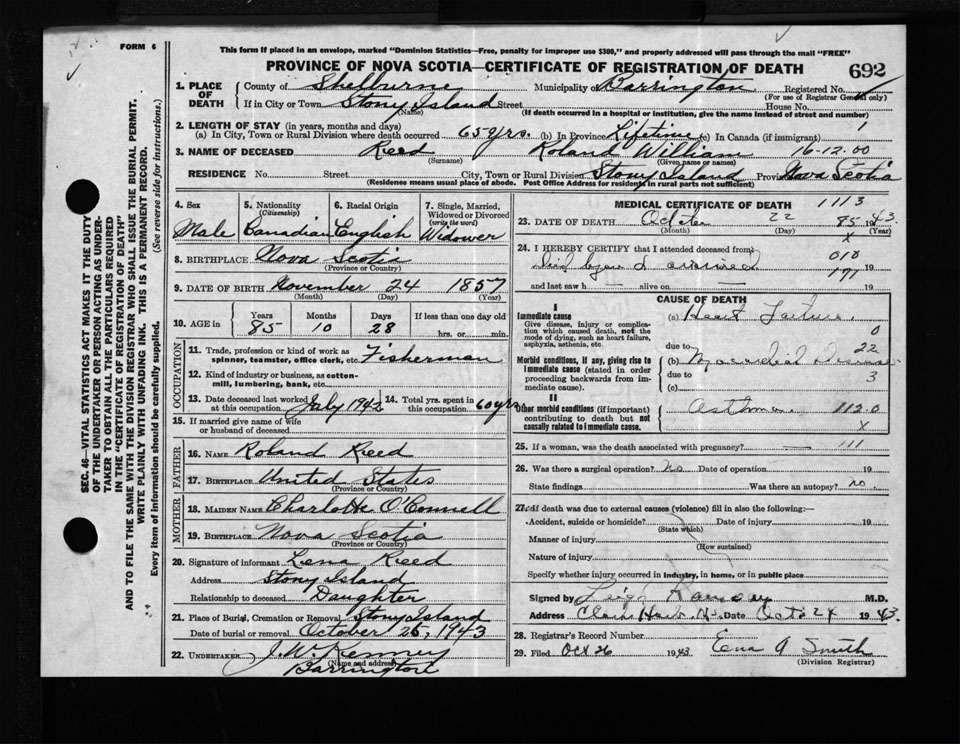 FORM 6
This form if placed in an envelope, marked "Dominion Statistics—Free, penalty for improper use $300," and properly addressed will pass through the mail "FREE"
PROVINCE OF NOVA SCOTIA—CERTIFICATE OF REGISTRATION OF DEATH
692
SEC. 46—VITAL STATISTICS ACT MAKES IT THE DUTY
OF THE UNDERTAKER OR PERSON ACTING AS UNDER-
TAKER TO OBTAIN ALL THE PARTICULARS REQUIRED
IN THE "CERTIFICATE OF REGISTRATION OF DEATH"
AND TO FILE THE SAME WITH THE DIVISION REGISTRAR WHO SHALL ISSUE THE BURIAL PERMIT.
WRITE PLAINLY WITH UNFADING INK. THIS IS A PERMANENT RECORD.
Every item of information should be carefully supplied. (See reverse side for instructions.)
1. PLACE OF DEATH
County of Shelburne Municipality Barrington Registered No.
(For use of Registrar General only)
If in City or Town Stony Island Street House No.
(Name) (If death occurred in a hospital or institution, give the name instead of street and number)
2. LENGTH OF STAY (in years, months and days)
(a) In City, Town or Rural Division where death occurred 65 yrs. (b) In Province Lifetime (c) In Canada (if immigrant) 1
3. NAME OF DECEASED Reed Roland William 16-12.00
(Surname) (Given name or names)
RESIDENCE No. Street City, Town or Rural Division Stony Island Province Nova Scotia
(Residence means usual place of abode. Post Office Address for residents in rural parts not sufficient)
4. Sex Male
5. Nationality (Citizenship) Canadian
6. Racial Origin English
7. Single, Married, Widowed or Divorced (write the word) Widower
8. BIRTHPLACE Nova Scotia
(Province or Country)
9. DATE OF BIRTH November 24 1857
(Month) (Day) (Year)
10. AGE in Years 85 Months 10 Days 28 If less than one day old hrs. or min.
OCCUPATION
11. Trade, profession or kind of work as spinner, teamster, office clerk, etc. Fisherman
12. Kind of industry or business, as cotton-mill, lumbering, bank, etc.
13. Date deceased last worked at this occupation July 1942 14. Total yrs. spent in this occupation 60 yrs
15. If married give name of wife or husband of deceased
FATHER
16. NAME Roland Reed
17. BIRTHPLACE United States
(Province or Country)
MOTHER
18. MAIDEN NAME Charlotte O'Connell
19. BIRTHPLACE Nova Scotia
(Province or Country)
20. Signature of informant Lena Reed
Address Stony Island
Relationship to deceased Daughter
21. Place of Burial, Cremation or Removal Stony Island
Date of burial or removal October 25, 1943
22. UNDERTAKER J. W. Kenney
(Name and address)
Barrington
MEDICAL CERTIFICATE OF DEATH 1113
23. DATE OF DEATH October 22 85 1943
(Month) (Day) x (Year)
24. I HEREBY CERTIFY that I attended deceased from 010
I arrived 171 19
and last saw h — alive on — 19
CAUSE OF DEATH
I
Immediate cause
Give disease, injury or complication which caused death, not the mode of dying, such as heart failure, asphyxia, asthenia, etc.
(a) Heart Failure 0
due to 22
Morbid conditions, if any, giving rise to immediate cause (stated in order proceeding backwards from immediate cause)
(b) Myocardial Disease
due to 3
(c)
II
Other morbid conditions (if important) contributing to death but not causally related to immediate cause.
Asthma. 112.0
x
25. If a woman, was the death associated with pregnancy? — 111
26. Was there a surgical operation? No Date of operation 19
State findings Was there an autopsy? no
27. If death was due to external causes (violence) fill in also the following:—
Accident, suicide or homicide? Date of injury 19
(State which)
Manner of injury
(How sustained)
Nature of injury
Specify whether injury occurred in industry, in home, or in public place
Signed by M.D.
Address Date Oct 24 1943.
28. Registrar's Record Number
29. Filed Oct 26 1943 Ena A Smith
(Division Registrar)